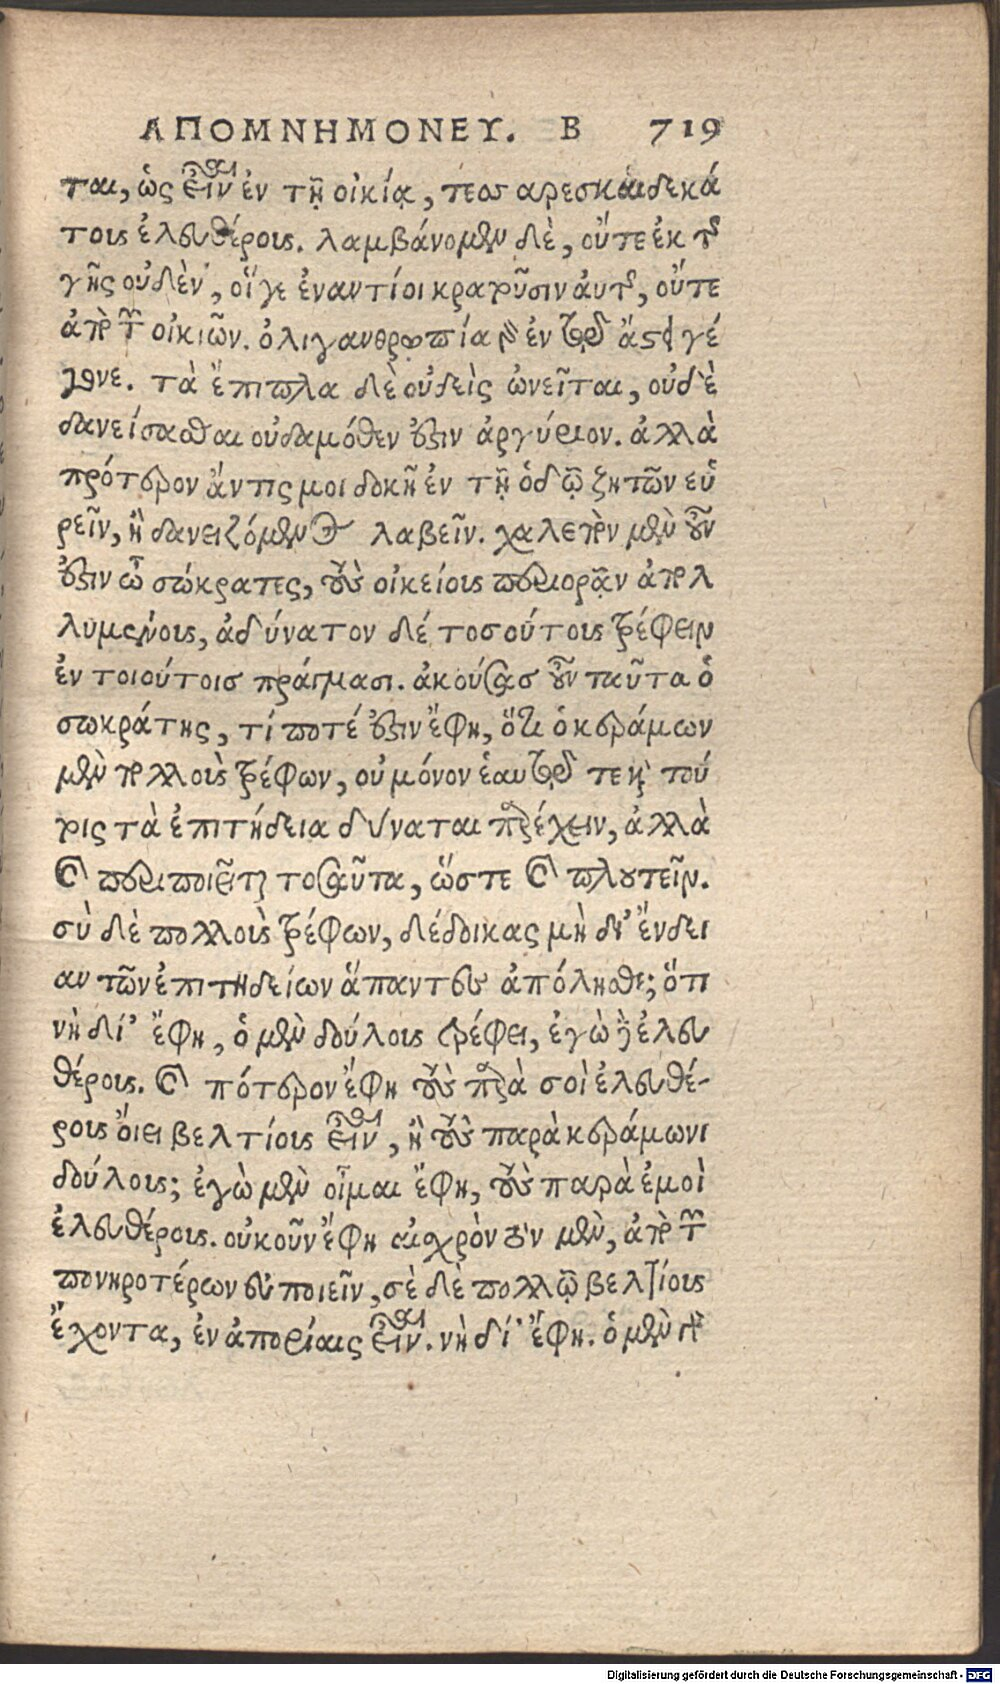 ΑΠΟΜΝΗΜΟΝΕΥ. Β 719
ται, ὡς εἶναι ἐν τῇ οἰκίᾳ, τεσσαρεσκαίδεκα
τους ἐλευθέρους. λαμβάνομεν δὲ, οὔτε ἐκ τῆς
γῆς οὐδὲν, οἵ γε ἐναντίοι κρατοῦσιν αὐτῆς, οὔτε
ἀπὸ τῶν οἰκιῶν. ὀλιγανθρωπία γὰρ ἐν τῷ ἄστει γέ
γονε. τὰ ἔπιπλα δὲ οὐδεὶς ὠνεῖται, οὐδὲ
δανείσασθαι οὐδαμόθεν ἔστιν ἀργύριον. ἀλλὰ
πρότερον ἄν τίς μοι δοκῇ ἐν τῇ ὁδῷ ζητῶν εὑ
ρεῖν, ἢ δανειζόμενος λαβεῖν. χαλεπὸν μὲν οὖν
ἔστιν ὦ σώκρατες, τοὺς οἰκείους περιορᾷν ἀπολ
λυμένους, ἀδύνατον δέ τοσούτους τρέφειν
ἐν τοιούτοις πράγμασι. ἀκούσας οὖν ταῦτα ὁ
σωκράτης, τί ποτέ ἔστιν ἔφη, ὅτι ὁ κεράμων
μὲν πολλοὺς τρέφων, οὐ μόνον ἑαυτῷ τε καὶ τού
τοις τὰ ἐπιτήδεια δύναται παρέχειν, ἀλλὰ
καὶ περιποιεῖται τοσαῦτα, ὥστε καὶ πλουτεῖν.
σὺ δὲ πολλοὺς τρέφων, δέδοικας μὴ δι' ἔνδει
αν τῶν ἐπιτηδείων ἅπαντες ἀπόλησθε; ὅτι
νὴ δί' ἔφη, ὁ μὲν δούλους τρέφει, ἐγὼ δὲ ἐλευ
θέρους. καὶ πότερον ἔφη τοὺς παρὰ σοὶ ἐλευθέ-
ρους οἴει βελτίους εἶναι, ἢ τοὺς παρὰ κεράμωνι
δούλους; ἐγὼ μὲν οἶμαι ἔφη, τοὺς παρὰ ἐμοὶ
ἐλευθέρους. οὐκοῦν ἔφη αἰσχρὸν τὸν μὲν, ἀπὸ τῶν
πονηροτέρων εὐποιεῖν, σὲ δὲ πολλῷ βελτίους
ἔχοντα, ἐν ἀπορίαις εἶναι. νὴ δί' ἔφη. ὁ μὲν γὰρ
Digitalisierung gefördert durch die Deutsche Forschungsgemeinschaft - DFG